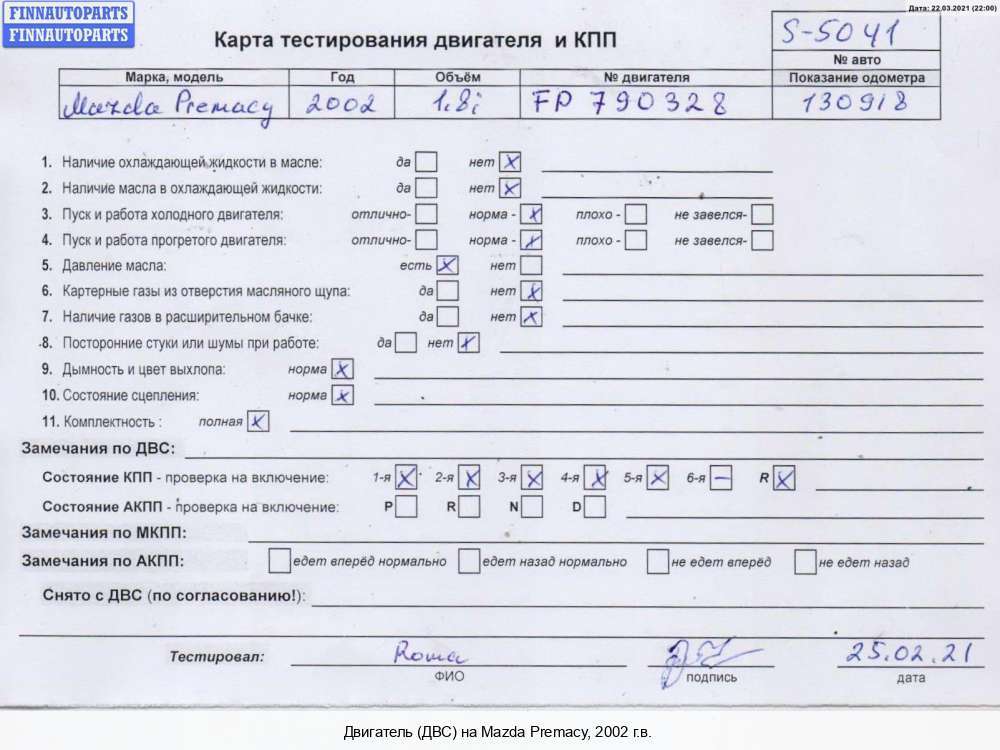 FINNAUTOPARTS
FINNAUTOPARTS
Дата: 22.03.2021 (22:00)
Карта тестирования двигателя и КПП
S-5041
№ авто
Марка, модель Год Объём № двигателя Показание одометра
Mazda Premacy 2002 1.8i FP 790328 130918
1. Наличие охлаждающей жидкости в масле: да нет X
2. Наличие масла в охлаждающей жидкости: да нет X
3. Пуск и работа холодного двигателя: отлично- норма - X плохо - не завелся-
4. Пуск и работа прогретого двигателя: отлично- норма - X плохо - не завелся-
5. Давление масла: есть X нет
6. Картерные газы из отверстия масляного щупа: да нет X
7. Наличие газов в расширительном бачке: да нет X
8. Посторонние стуки или шумы при работе: да нет X
9. Дымность и цвет выхлопа: норма X
10. Состояние сцепления: норма X
11. Комплектность : полная X
Замечания по ДВС:
Состояние КПП - проверка на включение: 1-я X 2-я X 3-я X 4-я X 5-я X 6-я – R X
Состояние АКПП - проверка на включение: P R N D
Замечания по МКПП:
Замечания по АКПП: едет вперёд нормально едет назад нормально не едет вперёд не едет назад
Снято с ДВС (по согласованию!):
Тестировал: Roma 25.02.21
ФИО подпись дата
Двигатель (ДВС) на Mazda Premacy, 2002 г.в.